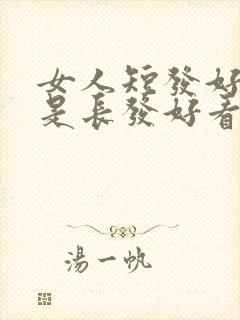 女人短發好
是長發好看
湯一帆